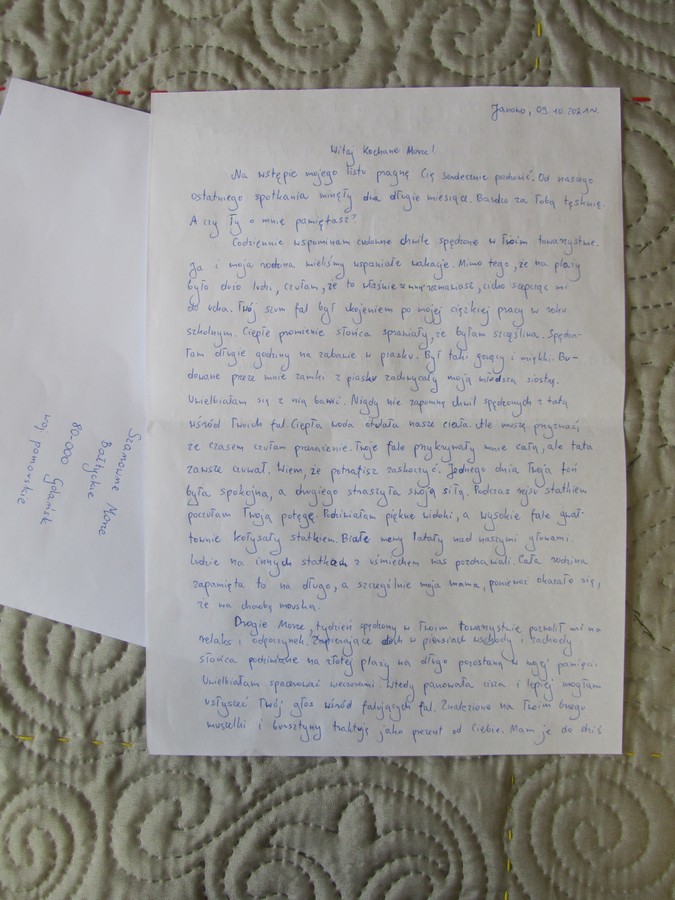 Janowo, 09.10.2021r.
Witaj Kochane Morze!
Na wstępie mojego listu pragnę Cię serdecznie pozdrowić. Od naszego
ostatniego spotkania minęły dwa długie miesiące. Bardzo za Tobą tęsknię.
A czy Ty o mnie pamiętasz?
Codziennie wspominam cudowne chwile spędzone w Twoim towarzystwie.
Ja i moja rodzina mieliśmy wspaniałe wakacje. Mimo tego, że na plaży
było dużo ludzi, czułam, że to właśnie ze mną rozmawiasz, cicho szepcząc mi
do ucha. Twój szum fal był ukojeniem po mojej ciężkiej pracy w roku
szkolnym. Ciepłe promienie słońca sprawiały, że byłam szczęśliwa. Spędza-
łam długie godziny na zabawie w piasku. Był taki gorący i miękki. Bu-
dowane przeze mnie zamki z piasku zachwycały moją młodszą siostrę.
Uwielbiałam się z nią bawić. Nigdy nie zapomnę chwil spędzonych z tatą
wśród Twoich fal. Ciepła woda otulała nasze ciała. Ale muszę przyznać,
że czasem czułam przerażenie. Twoje fale przykrywały mnie całą, ale tata
zawsze czuwał. Wiem, że potrafisz zaskoczyć. Jednego dnia Twoja toń
była spokojna, a drugiego straszyła swoją siłą. Podczas rejsu statkiem
poczułam Twoją potęgę. Podziwiałam piękne widoki, a wysokie fale gwał-
townie kołysały statkiem. Białe mewy latały nad naszymi głowami.
Ludzie na innych statkach z uśmiechem nas pozdrawiali. Cała rodzina
zapamięta to na długo, a szczególnie moja mama, ponieważ okazało się,
że ma chorobę morską.
Drogie Morze, tydzień spędzony w Twoim towarzystwie pozwolił mi na
relaks i odpoczynek. Zapierające dech w piersiach wschody i zachody
słońca podziwiane na złotej plaży na długo pozostaną w mojej pamięci.
Uwielbiałam spacerować wieczorami. Wtedy panowała cisza i lepiej mogłam
usłyszeć Twój głos wśród falujących fal. Znalezione na Twoim brzegu
muszelki i bursztyny traktuję jako prezent od Ciebie. Mam je do dziś
Szanowne Morze
Bałtyckie
80-000 Gdańsk
woj. pomorskie